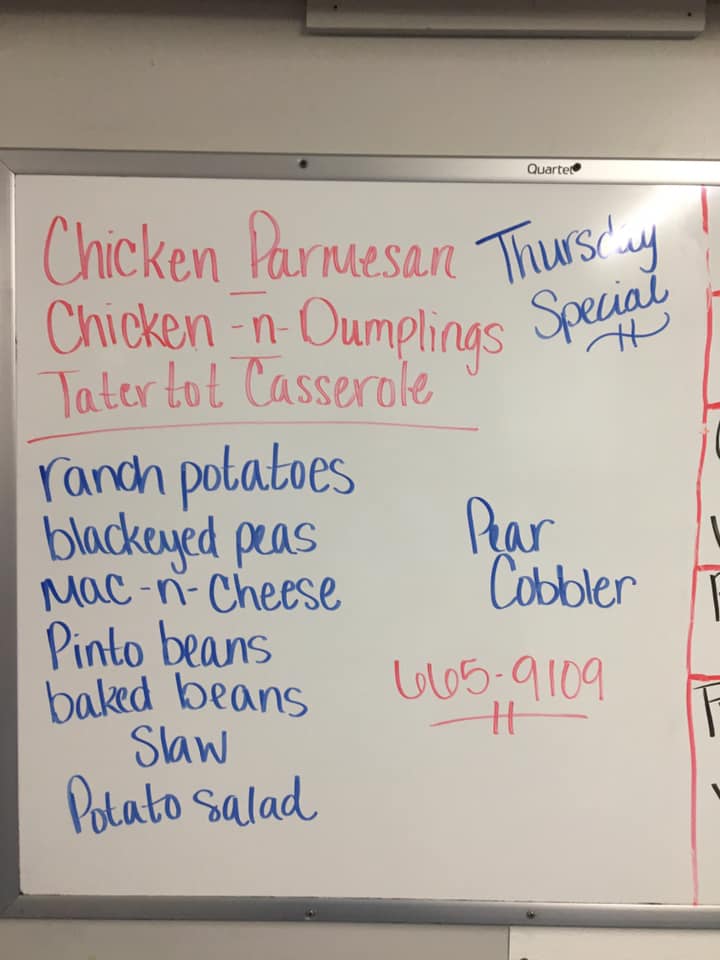 Quartet
Chicken Parmesan
Thursday
Special
Chicken -n- Dumplings
Tater tot Casserole
ranch potatoes
blackeyed peas
Mac-n-Cheese
Pinto beans
baked beans
Slaw
Potato salad
Pear
Cobbler
665-9109